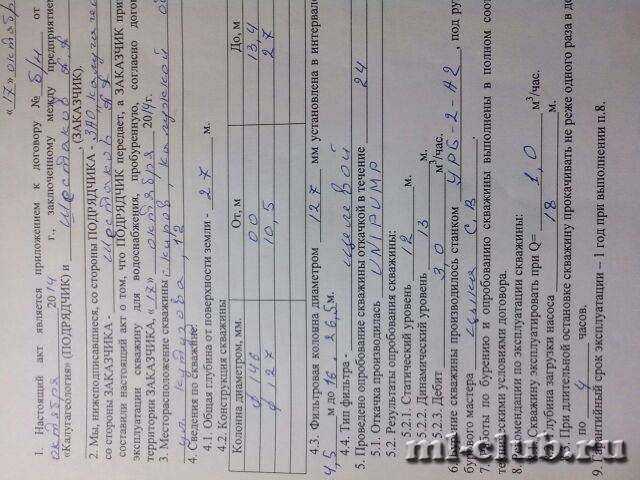 «17» октября
1. Настоящий акт является приложением к договору № б/н от
октября 2014 г., заключенному между предприятием
«Калугагеология» (ПОДРЯДЧИК) и Шестаков (ЗАКАЗЧИК).
2. Мы, нижеподписавшиеся, со стороны ПОДРЯДЧИКА - ЗАО
со стороны ЗАКАЗЧИКА - Шестаков
составили настоящий акт о том, что ПОДРЯДЧИК передает, а ЗАКАЗЧИК
эксплуатации скважину для водоснабжения, пробуренную, согласно
территории ЗАКАЗЧИКА, «17» октября 2014г.
3. Месторасположение скважины г. Киров, Калужской
ул Кутузова, 12
4. Сведения по скважине:
4.1. Общая глубина от поверхности земли - 27 м.
4.2. Конструкция скважины
Колонна диаметром, мм. От, м До, м
ф 146 00 13,4
ф 127 10,5 27
4.3. Фильтровая колонна диаметром 127 мм установлена в интервале
4,5 м до 16, 26,5 м.
4.4. Тип фильтра - щелевой
5. Проведено опробование скважины откачкой в течение 24
5.1. Откачка производилась UNIPUMP
5.2. Результаты опробования скважины:
5.2.1. Статический уровень 12 м.
5.2.2. Динамический уровень 13 м.
5.2.3. Дебит 3.0 м³/час.
6. Бурение скважины производилось станком УРБ-2-А2, под
бурового мастера С.В.
7. Работы по бурению и опробованию скважины выполнены в полном
техническими условиями договора.
8. Рекомендации по эксплуатации скважины:
Скважину эксплуатировать при Q= 1,0 м³/час.
Глубина загрузки насоса 18 м.
При длительной остановке скважину прокачивать не реже одного раза в
по 4 часов.
9. Гарантийный срок эксплуатации – 1 год при выполнении п.8.
ml-club.ru